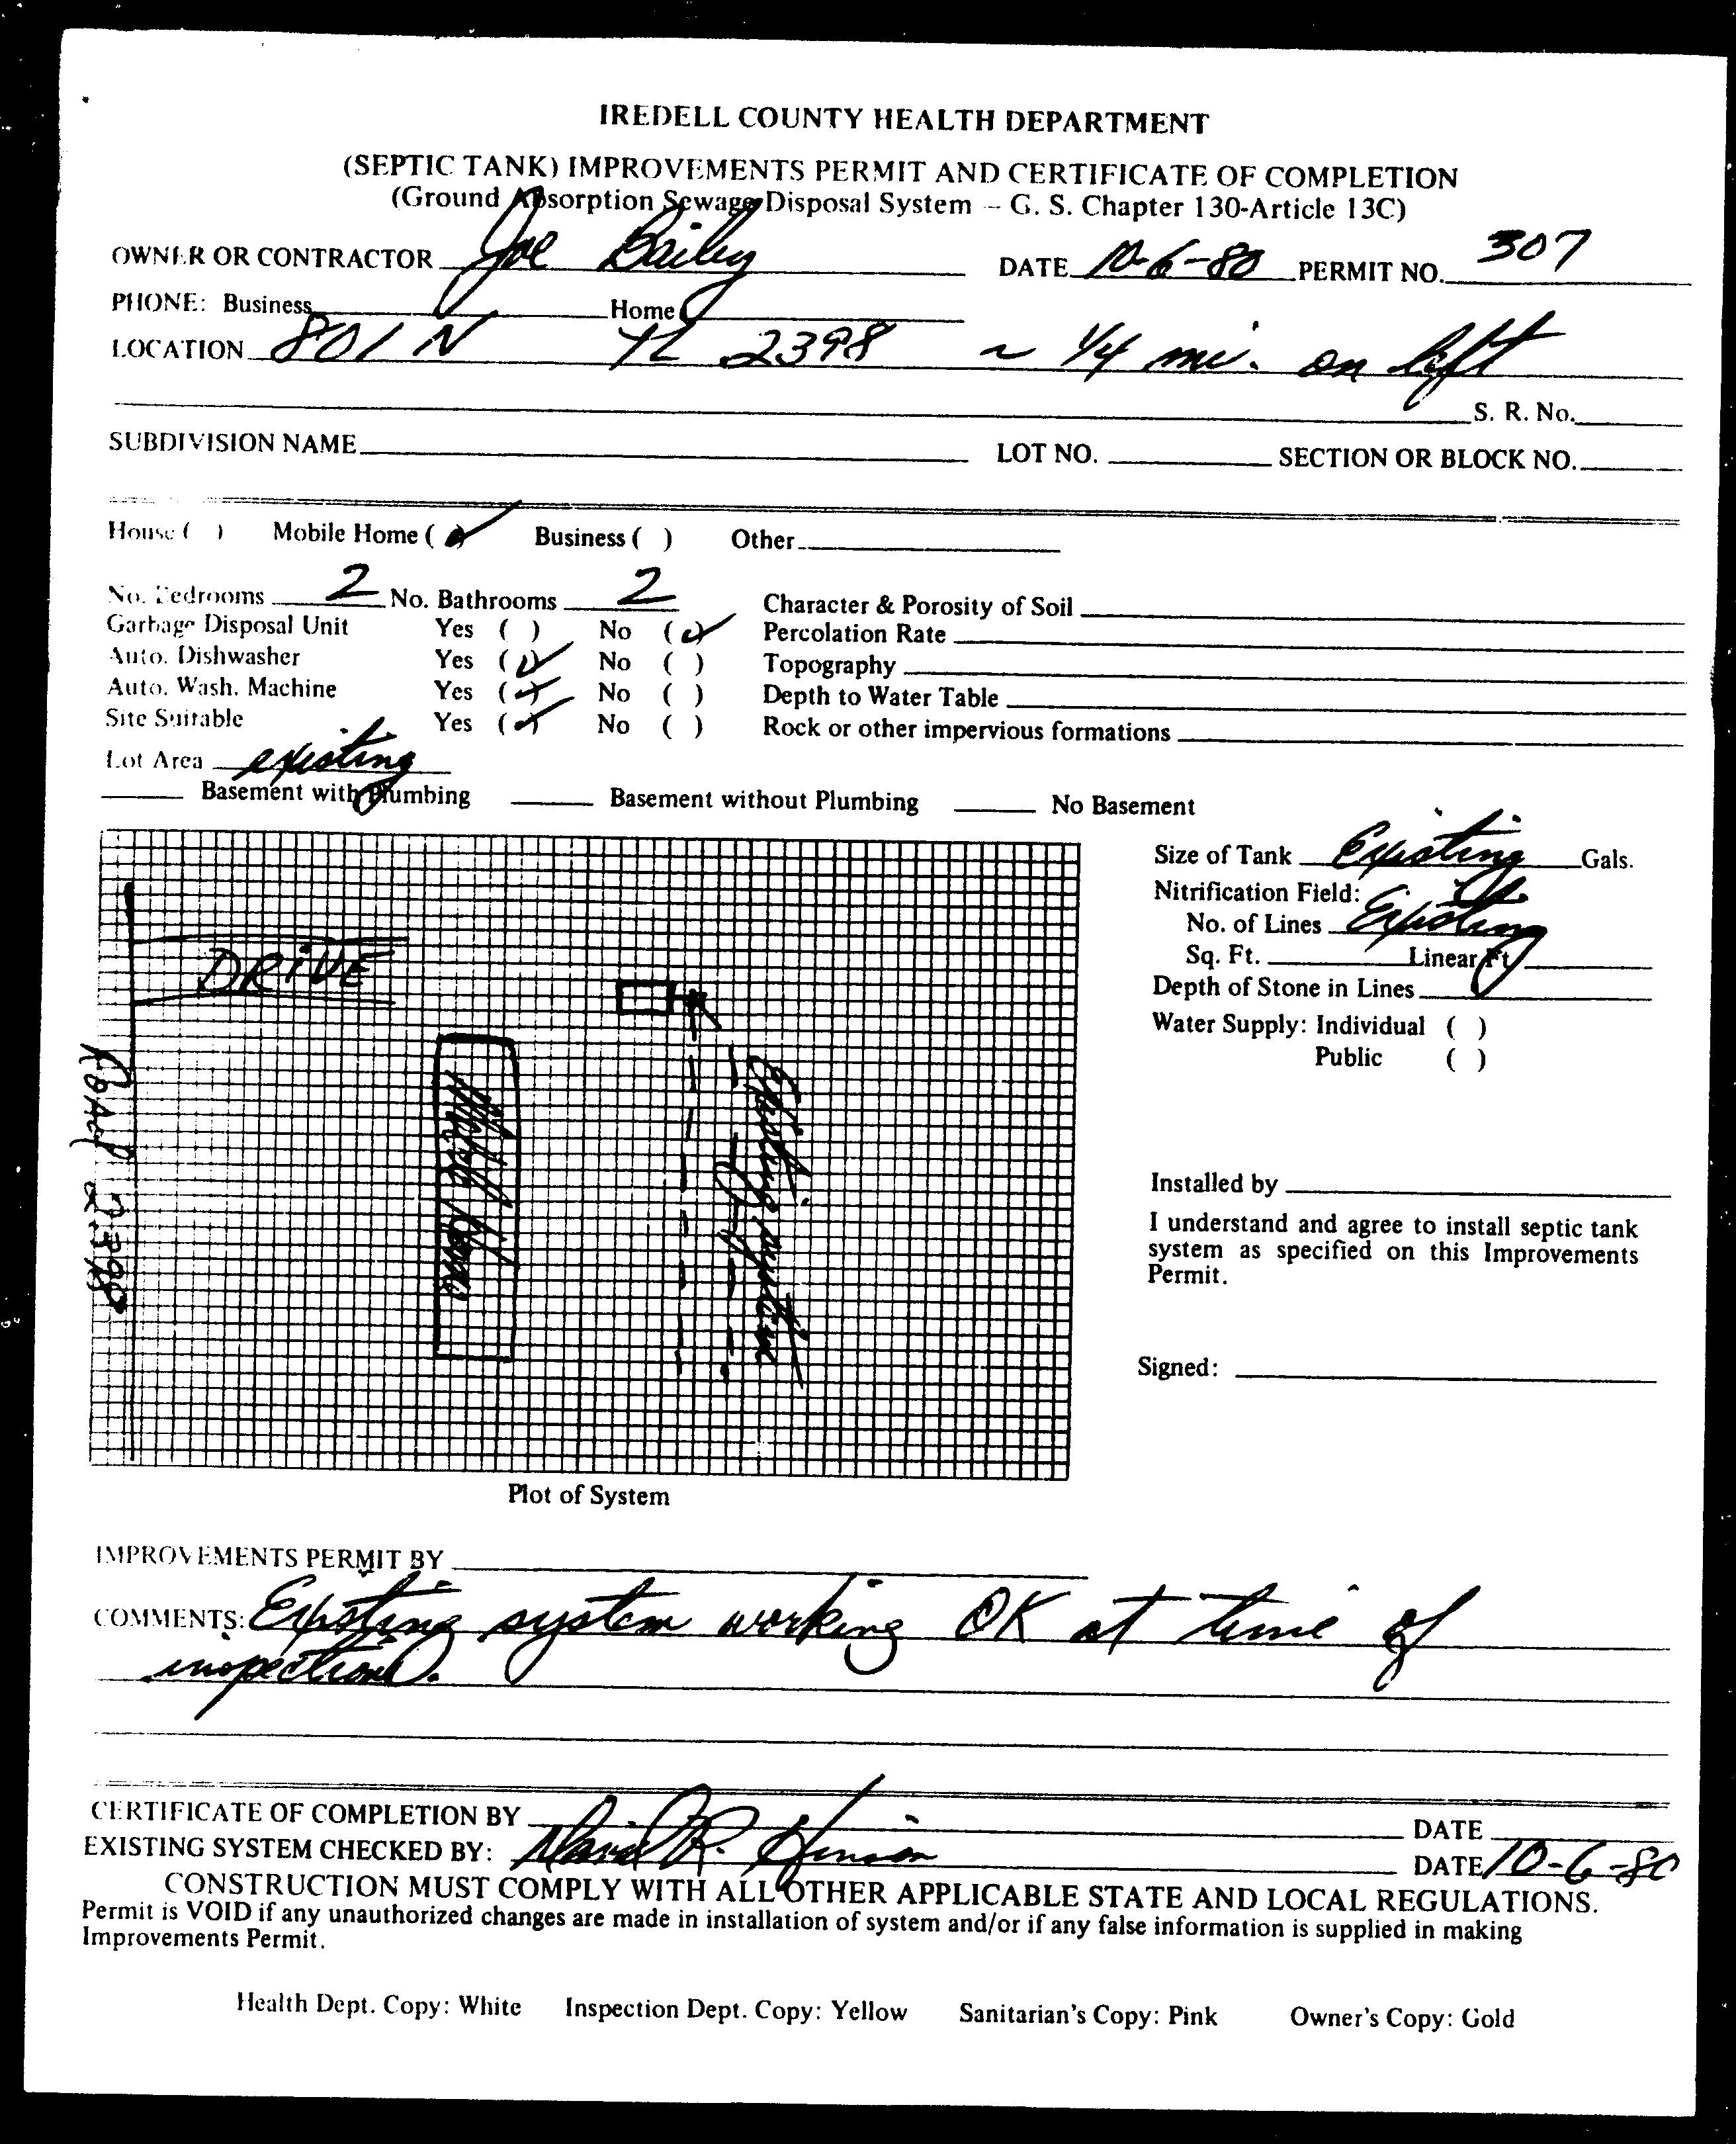 IREDELL COUNTY HEALTH DEPARTMENT
(SEPTIC TANK) IMPROVEMENTS PERMIT AND CERTIFICATE OF COMPLETION
(Ground Absorption Sewage Disposal System – G. S. Chapter 130-Article 13C)
OWNER OR CONTRACTOR Joe Bailey DATE 10-6-80 PERMIT NO. 307
PHONE: Business Home
LOCATION 801 N 2398 ~ 1/4 mi. on left
S. R. No.
SUBDIVISION NAME LOT NO. SECTION OR BLOCK NO.
House ( ) Mobile Home (✓) Business ( ) Other
No. Bedrooms 2 No. Bathrooms 2 Character & Porosity of Soil
Garbage Disposal Unit Yes ( ) No (✓) Percolation Rate
Auto. Dishwasher Yes (✓) No ( ) Topography
Auto. Wash. Machine Yes (✓) No ( ) Depth to Water Table
Site Suitable Yes (✓) No ( ) Rock or other impervious formations
Lot Area existing
Basement with Plumbing Basement without Plumbing No Basement
Size of Tank Existing Gals.
Nitrification Field:
No. of Lines Existing
Sq. Ft. Linear Ft.
Depth of Stone in Lines
Water Supply: Individual ( )
Public ( )
DRIVE
Road 2398
Mobile Home
Existing system
Installed by
I understand and agree to install septic tank
system as specified on this Improvements
Permit.
Signed:
Plot of System
IMPROVEMENTS PERMIT BY
COMMENTS: Existing system working OK at time of
inspection.
CERTIFICATE OF COMPLETION BY DATE
EXISTING SYSTEM CHECKED BY: David R. Henson DATE 10-6-80
CONSTRUCTION MUST COMPLY WITH ALL OTHER APPLICABLE STATE AND LOCAL REGULATIONS.
Permit is VOID if any unauthorized changes are made in installation of system and/or if any false information is supplied in making
Improvements Permit.
Health Dept. Copy: White Inspection Dept. Copy: Yellow Sanitarian's Copy: Pink Owner's Copy: Gold